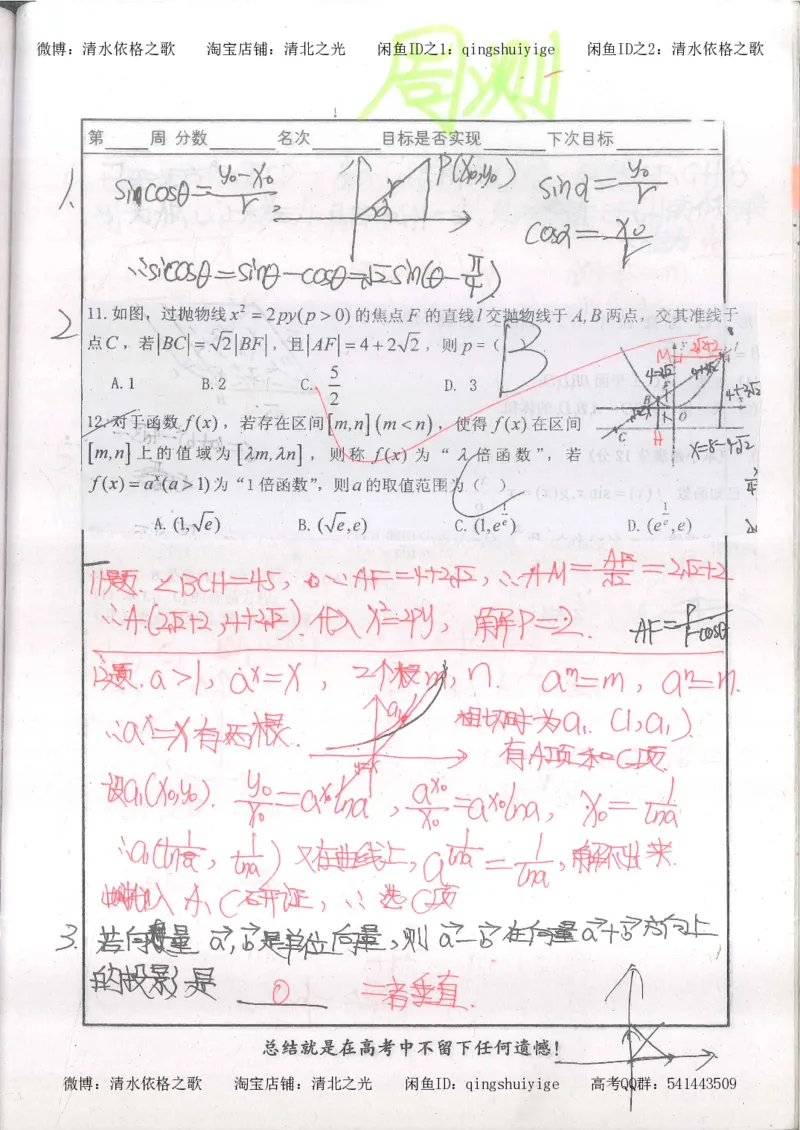 微博：清水依格之歌 淘宝店铺：清北之光 闲鱼ID之1：qingshuiyige 闲鱼ID之2：清水依格之歌
周测
第 周 分数 名次 目标是否实现 下次目标
1. sicosθ=\frac{y₀-x₀}{r} P(x₀,y₀) r α sinα=\frac{y₀}{r}
cosα=\frac{x₀}{r}
∴sicosθ=sinθ-cosθ=√2sin(θ-\frac{π}{4})
2 11.如图，过抛物线x²=2py(p>0)的焦点F的直线l交抛物线于A,B两点，交其准线于
点C，若|BC|=√2|BF|，且|AF|=4+2√2，则p=( B
A.1 B.2 C.\frac{5}{2} D.3
12.对于函数f(x)，若存在区间[m,n](m<n)，使得f(x)在区间
[m,n]上的值域为[λm,λn]，则称f(x)为“λ倍函数”，若
f(x)=aˣ(a>1)为“1倍函数”，则a的取值范围为( C )
A.(1,√e) B.(√e,e) C.(1,e^{\frac{1}{e}}) D.(e^{\frac{1}{e}},e)
M 2√2+2
4+2√2
C
O
H
x=8-4√2
11题 ∠BCH=45，∵AF=4+2√2，∴AM=\frac{AF}{√2}=2√2+2
∴A(2√2+2,4+2√2).代入x²=2py，解P=2. AF=\frac{P}{1-cosθ}
12题.a>1，aˣ=x，2个根m,n. aᵐ=m，aⁿ=n.
∴aˣ=x有两根. a₁ 相切时为a₁.(1,a₁).
有A项和C项
设a₁(x₀,y₀). \frac{y₀}{x₀}=a^{x₀}lna，\frac{a^{x₀}}{x₀}=a^{x₀}lna，x₀=\frac{1}{lna}
∴a₁(\frac{1}{lna},\frac{1}{lna})又在曲线上，a^{\frac{1}{lna}}=\frac{1}{lna}，解不出来.
代入A、C研证，∴选C项
3. 若向量a⃗,b⃗是单位向量，则a⃗-b⃗在向量a⃗+b⃗方向上
的投影是 0 二者垂直.
总结就是在高考中不留下任何遗憾！
微博：清水依格之歌 淘宝店铺：清北之光 闲鱼ID：qingshuiyige 高考QQ群：541443509